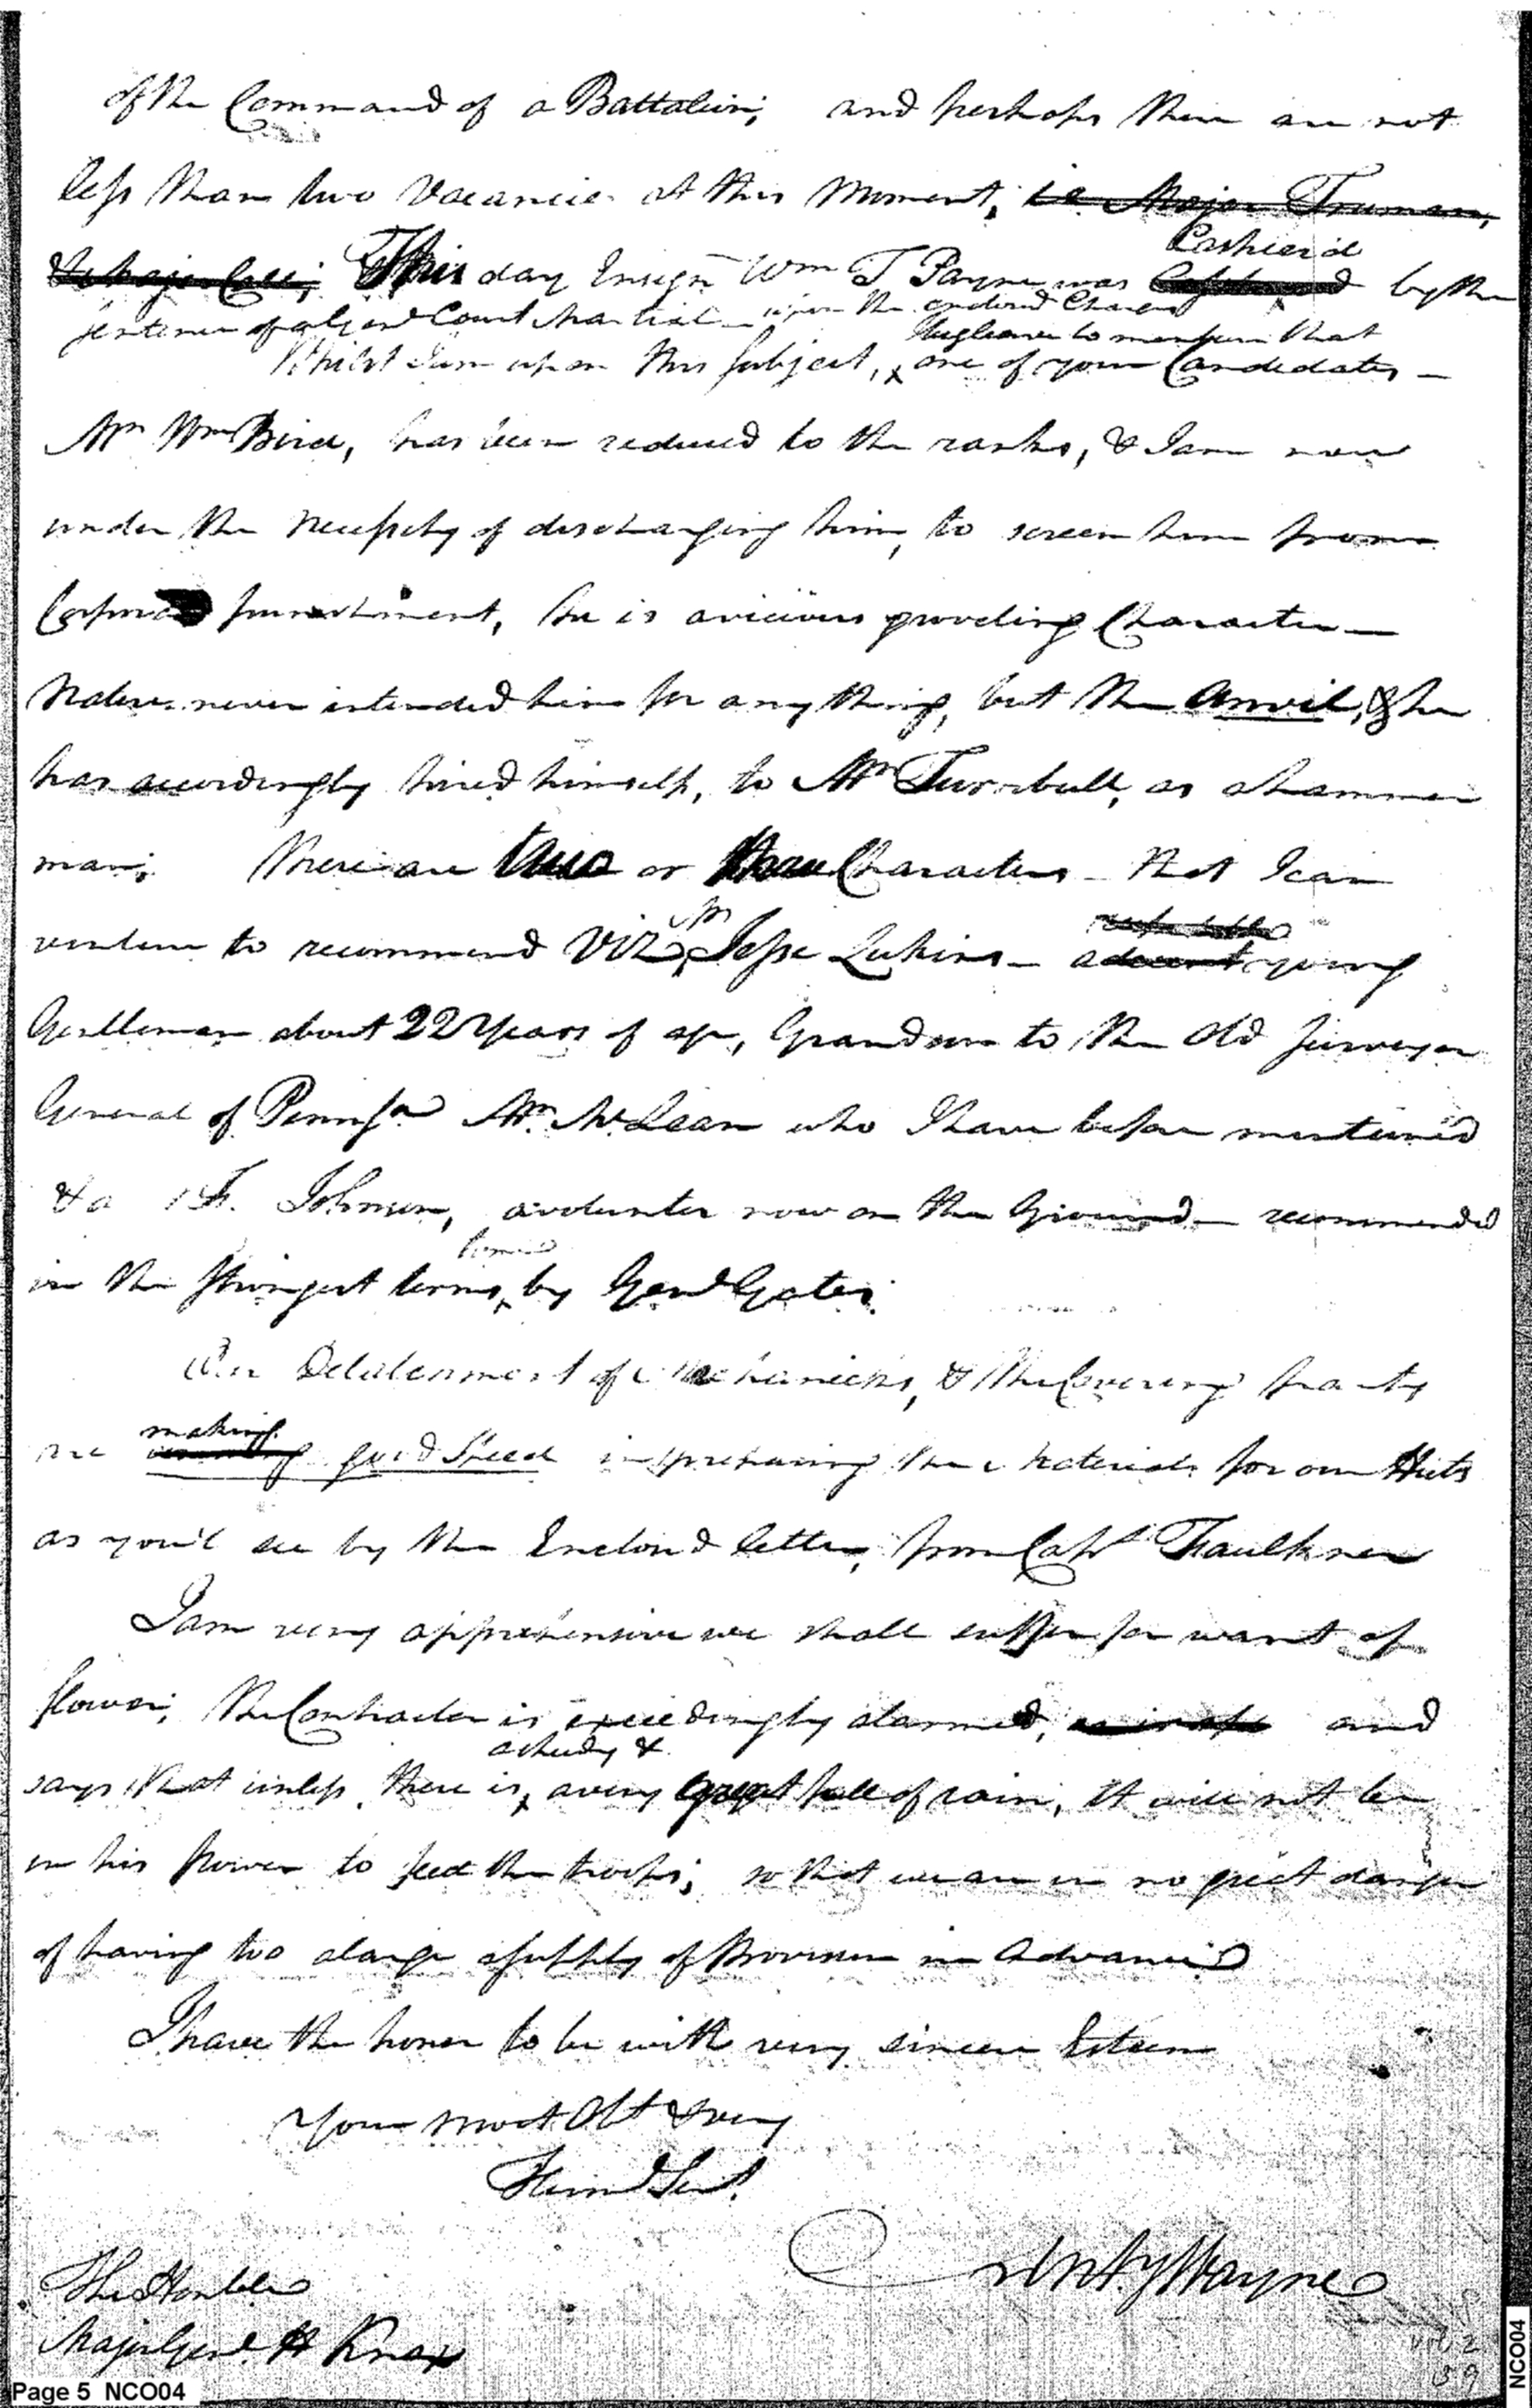 of the Command of a Battalion; and perhaps there are not
less than two Vacancies at this Moment, i.e. Major Truman,
& Major Call; This day Ensign Wm T Payne was Cashier'd by the
sentence of a Genl Court Martial – upon the enclosed Charges
Whilst I am upon this subject, beg leave to mention that one of your Candidates –
Mr Wm Bird, has been reduced to the ranks, & I am now
under the necessity of discharging him, to screen him from
Corporal punishment, he is a vicious groveling Character –
Nature never intended him for any thing, but the Anvil, & he
has accordingly hired himself, to Mr Turnbull, as a hammer
man; there are two or three Characters – that I can
venture to recommend Viz Mr Jesse Lukins – a decent young
Gentleman about 22 Years of age, Grandson to the Old Surveyor
General of Pennsa Mr McLean who I have before mentioned
& a Johnson, a volunteer now on the Ground – recommended
in the strongest terms, by Genl Gates.
Our Detachment of Mechanicks, & the Covering party
are making good Speed in preparing the Materials for our Huts
as you'l see by the Enclosed letter, from Capt Faulkner
I am very apprehensive we shall suffer for want of
flower; the Contractor is exceedingly alarmed, and
says that unless there is, a steady & a very great fall of rain, it will not be
in his power to feed the troops; so that we are in no great danger
of having too a large a supply of Provision in Advance
I have the honor to be with very sincere Esteem
Your most Obt & very
Huml Sert.
Anty Wayne
The Honble
Major Genl. H Knox
Page 5 NCO04
NCO04